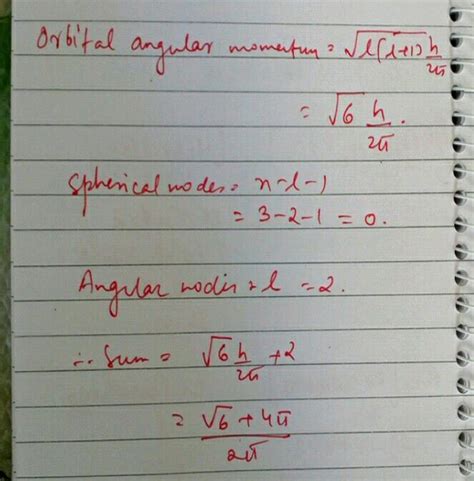 Orbital angular momentum = √l(l+1) h/2π
= √6 h/2π.
Spherical nodes = n-l-1
= 3-2-1 = 0.
Angular nodes = l = 2.
∴ Sum = √6 h/2π + 2
= √6 + 4π/2π